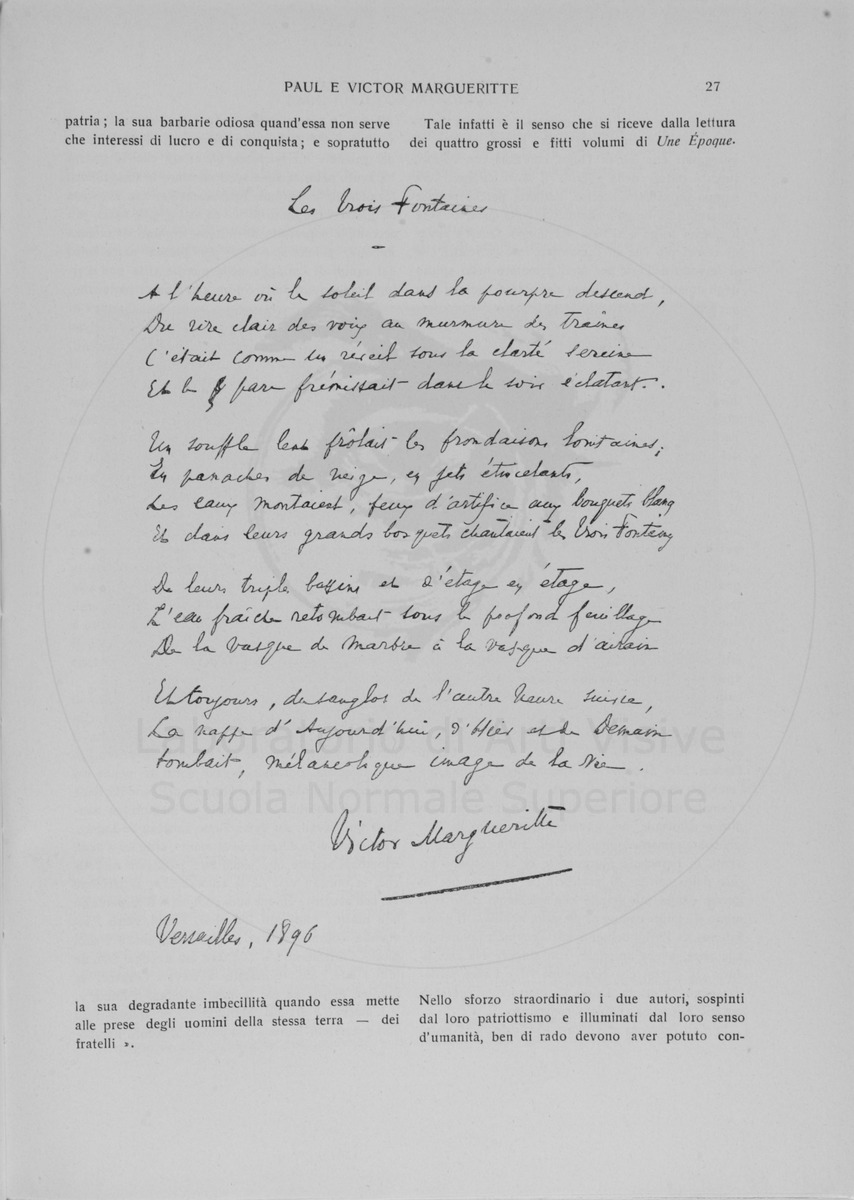 PAUL E VICTOR MARGUERITTE 27
patria ; la sua barbarie odiosa quand'essa non serve
che interessi di lucro e di conquista ; e sopratutto
Tale infatti è il senso che si riceve dalla lettura
dei quattro grossi e fitti volumi di Une Époque.
Les Trois Fontaines
A l'heure où le soleil dans la pourpre descend,
Du rire clair des voix au murmure des traînes
C'était comme un réveil sous la clarté sereine
Et le parc frémissait dans le soir éclatant.
Un souffle lent frôlait les frondaisons lointaines ;
En panaches de neige, en jets étincelants,
Les eaux montaient, feux d'artifice aux bouquets blancs
Et dans leurs grands bosquets chantaient les Trois Fontaines
De leurs triples bassins et d'étage en étage,
L'eau fraîche retombait sous le profond feuillage
De la vasque de marbre à la vasque d'airain
Et toujours, du sanglot de l'autre heure suivie,
La nappe d'Aujourd'hui, d'Hier et de Demain
tombait, mélancolique image de la Vie.
Victor Margueritte
Versailles, 1896
la sua degradante imbecillità quando essa mette
alle prese degli uomini della stessa terra — dei
fratelli ».
Nello sforzo straordinario i due autori, sospinti
dal loro patriottismo e illuminati dal loro senso
d'umanità, ben di rado devono aver potuto con-
Laboratorio di Arti Visive
Scuola Normale Superiore